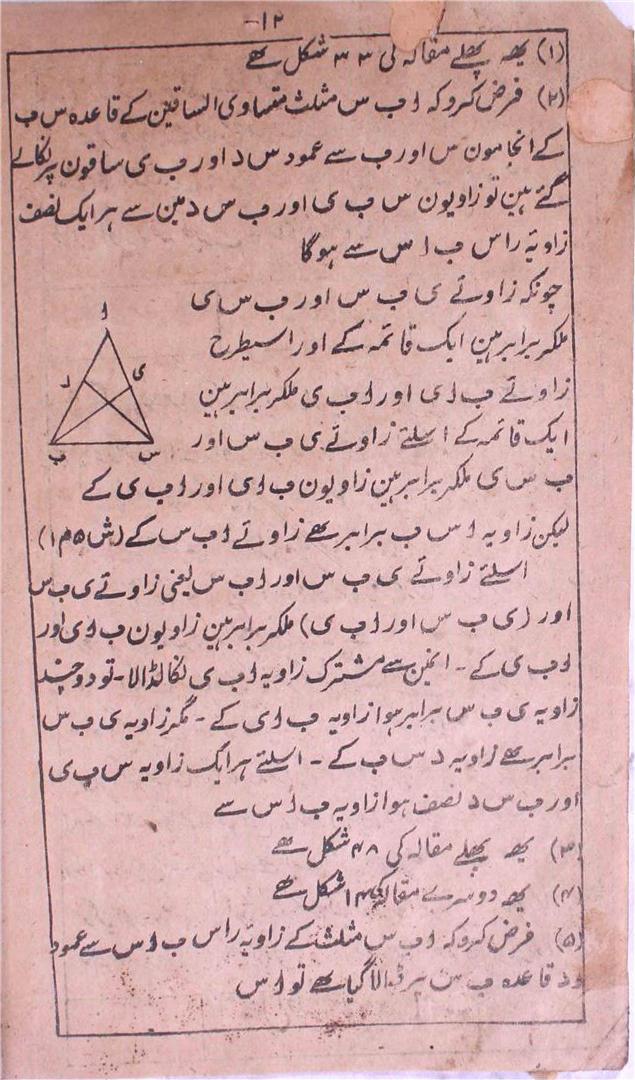 ۱۲-
(۱) یھہ پھلے مقالہ کی ۳۳ شکل ھے
(۲) فرض کرو کہ ا ب س مثلث متساوی الساقین کے قاعدہ س ب
کے انجامون س اور ب سے عمود س د اور ب ی ساقون پر نکالے
گئے ہین تو زاویون س ب ی اور ب س د مین سے ہر ایک نصف
زاویۂ راس ب ا س سے ہوگا
چونکہ زاوئے ی ب س اور ب س ی
ملکر برابر ہین ایک قائمہ کے اور اسیطرح
زاوئے ب ا ی اور ا ب ی ملکر برابر ہین
ایک قائمہ کے اسلئے زاوئے ی ب س اور
ب س ی ملکر برابر ہین زاویون ب ا ی اور ا ب ی کے
لیکن زاویہ ا س ب برابر ھے زاوئے ا ب س کے (ش ۵ م ۱)
اسلئے زاوئے ی ب س اور ا ب س یعنی زاوئے ی ب س
اور (ی ب س اور ا ب ی) ملکر برابر ہین زاویون ب ا ی اور
ا ب ی کے - انمین سے مشترک زاویہ ا ب ی نکالڈالا - تو دو چند
زاویہ ی ب س برابر ہوا زاویہ ب ا ی کے - مگر زاویہ ی ب س
برابر ھے زاویہ د س ب کے - اسلئے ہر ایک زاویہ س ب ی
اور ب س د نصف ہوا زاویہ ب ا س سے
(۳) یھہ پھلے مقالہ کی ۴۸ شکل ھے
(۴) یھہ دوسرے مقالہ کی ۱۴ شکل ھے
(۵) فرض کرو کہ ا ب س مثلث کے زاویۂ راس ب ا س سے عمود
ا د قاعدہ ب س پر ڈالا گیا ھے تو ا س
ا
د
ی
ب
س